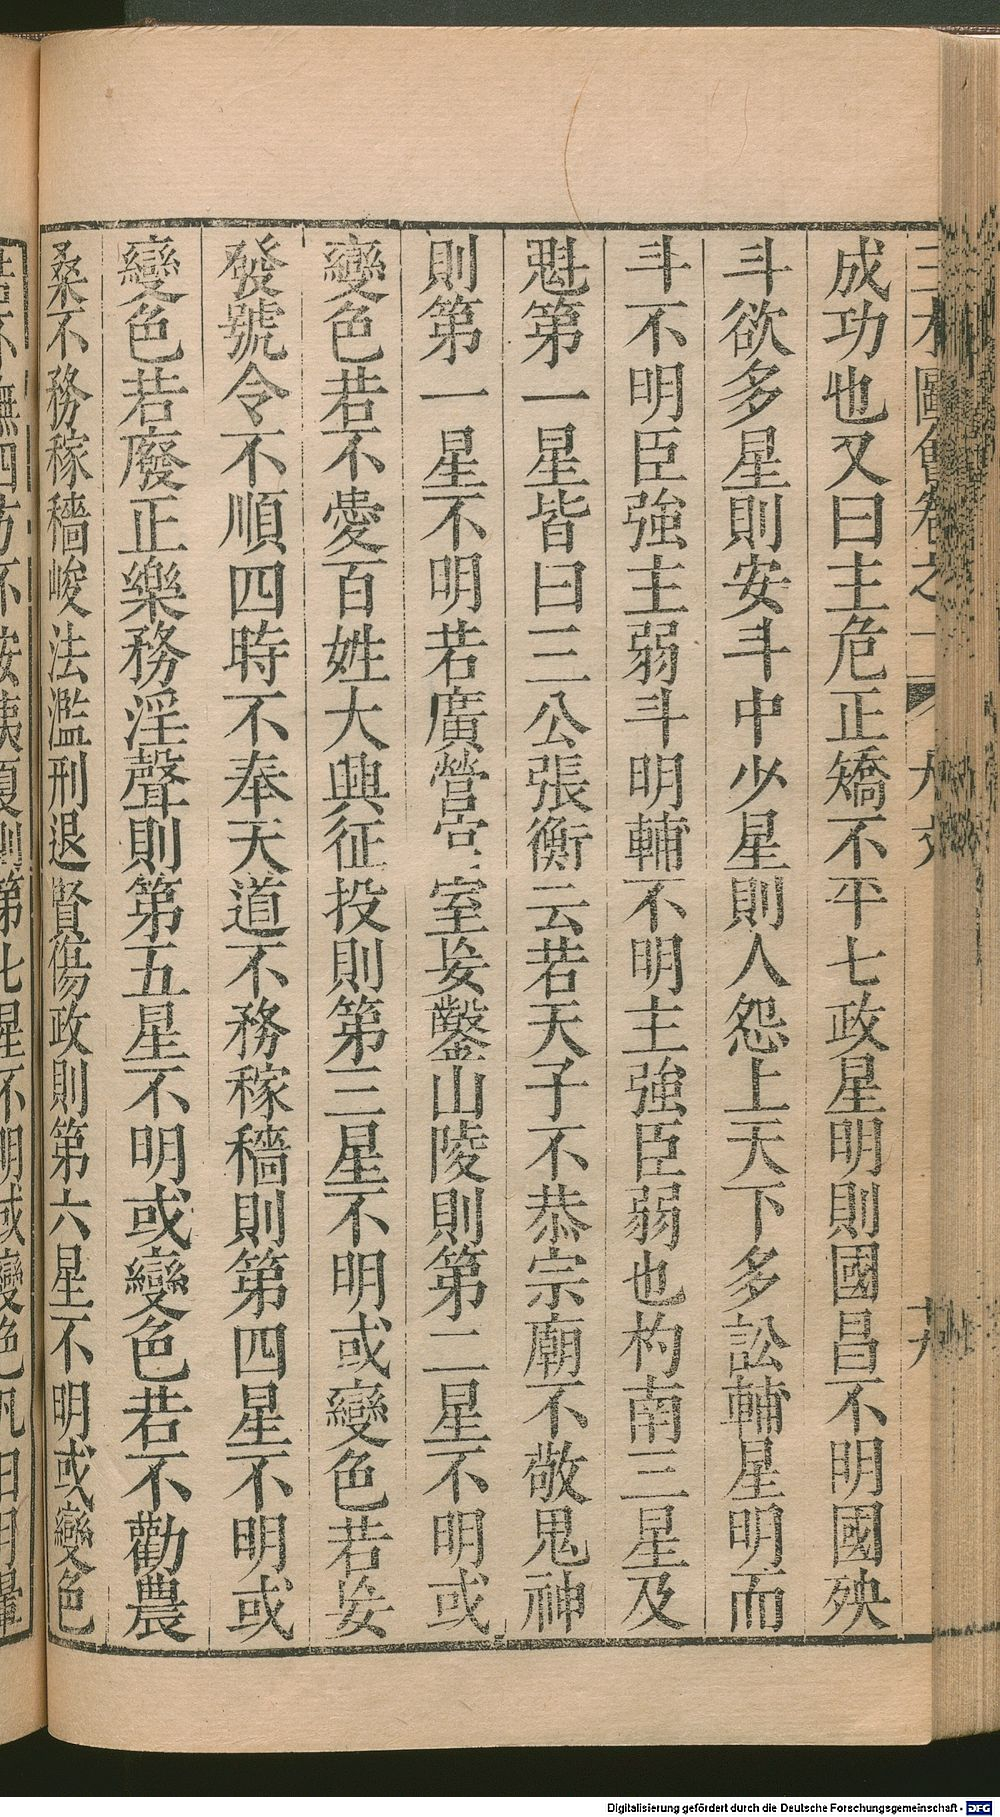 成功也又曰主危正矯不平七政星明則國昌不明國殃
斗欲多星則安斗中少星則人怨上天下多訟輔星明而
斗不明臣強主弱斗明輔不明主強臣弱也杓南三星及
魁第一星皆曰三公張衡云若天子不恭宗廟不敬鬼神
則第一星不明若廣營宮室妄鑿山陵則第二星不明或
變色若不愛百姓大興征投則第三星不明或變色若妄
發號令不順四時不奉天道不務稼穡則第四星不明或
變色若廢正樂務淫聲則第五星不明或變色若不勸農
桑不務稼穡峻法濫刑退賢傷政則第六星不明或變色
Digitalisierung gefördert durch die Deutsche Forschungsgemeinschaft - DFG